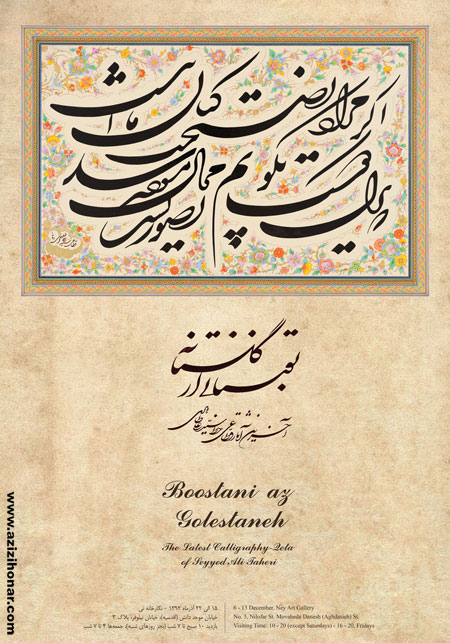 اگر مراد نصیحت کنان ما اینست
که ترک دوست بگویم تصوریست محال
بوستانی از گلستانه
آخرین آثار خط سید علی طاهری
Boostani az
Golestaneh
The Latest Calligraphy-Qeta
of Seyyed Ali Taheri
۱۵ الی ۲۲ آذرماه ۱۳۹۲ - نگارخانه نی
خیابان موحد دانش (اقدسیه)، خیابان نیلوفر، پلاک ۳
بازدید ۱۰ صبح تا ۷ شب (بجز روزهای شنبه)، جمعه‌ها ۴ تا ۷ شب
6 - 13 December, Ney Art Gallery
No 3, Nilofar St. Movahede Danesh (Aghdasieh) St.
Visiting Time: 10 - 20 (except Saturdays) - 16 - 20, Fridays
www.azizihonar.com